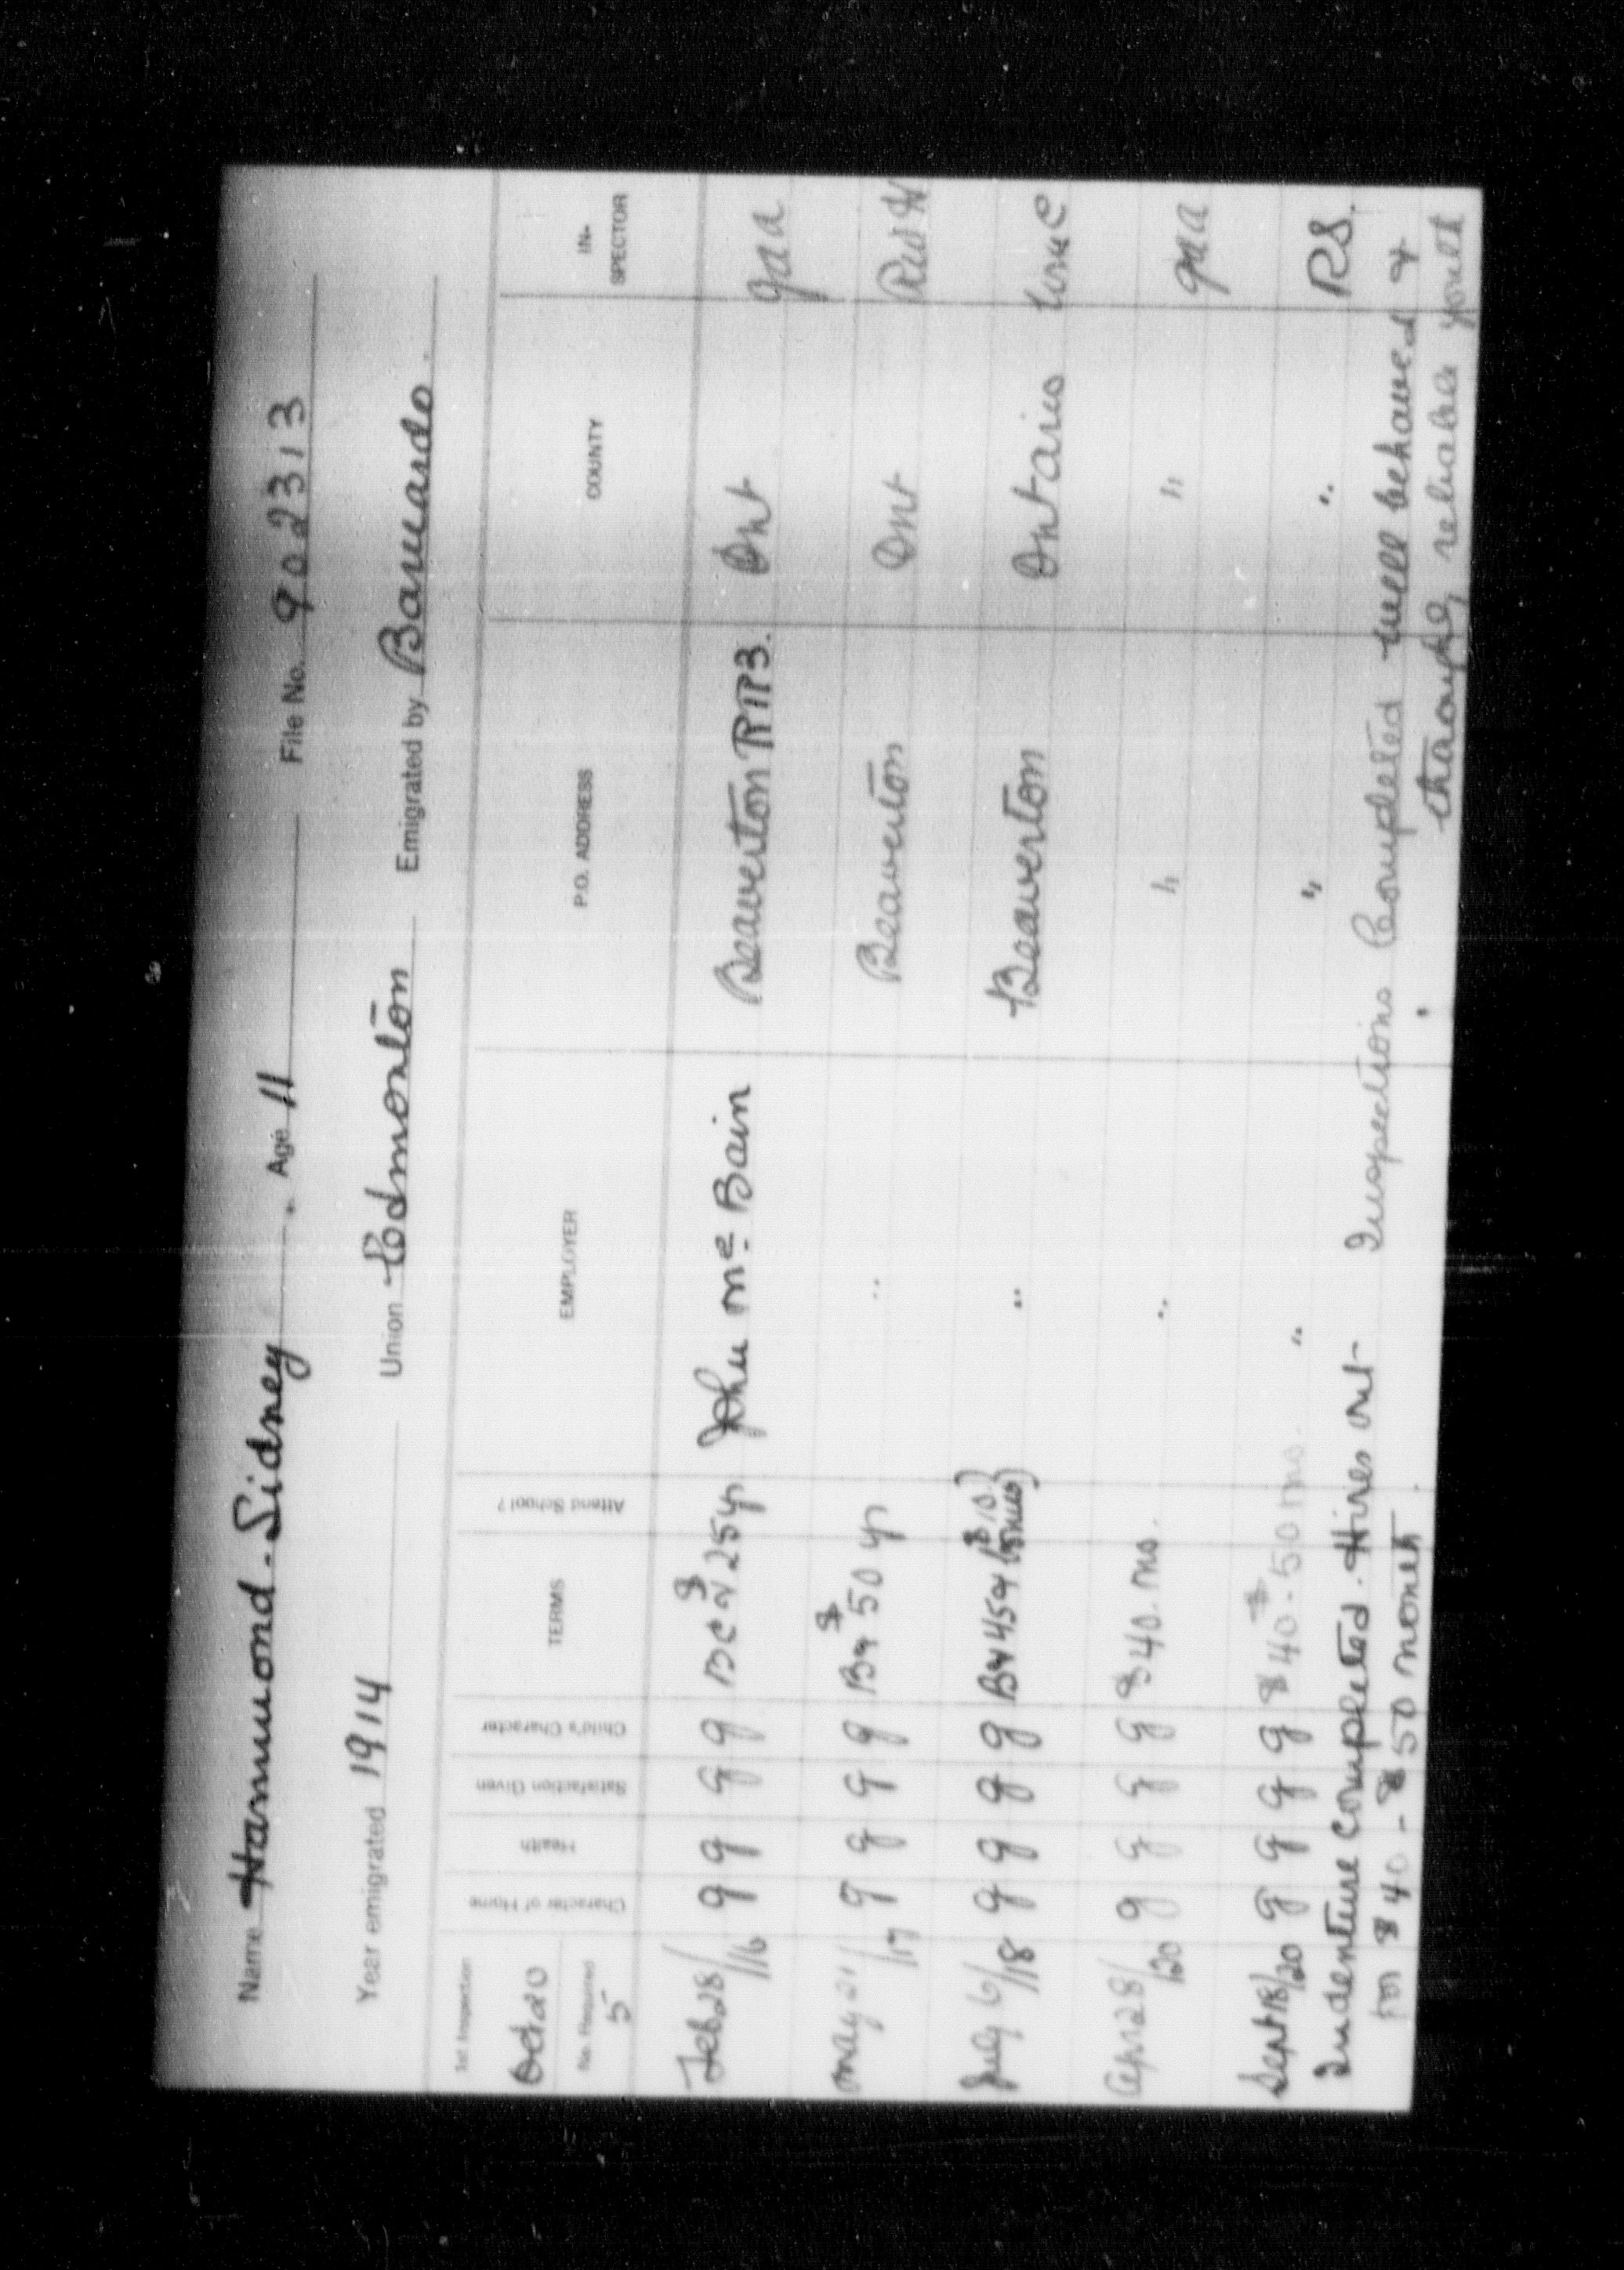 Name Hammond - Sidney. Age 11 File No. 902313
Year emigrated 1914 Union Edmonton Emigrated by Barnardo.
1st Inspection Character of Home Health Satisfaction Given Child's Character TERMS Attend School? EMPLOYER P.O. ADDRESS COUNTY IN-SPECTOR
Oct 20
No. Required
5
Feb 28/16 g g g g $25 yr John Mc Bain Beaverton RR3. Ont
May 21/17 g g g g $50 yr " Beaverton Ont
July 6/18 g g g g ($10 bonus) " Beaverton Ontario
Apr 28/20 g g g g $40. mo. " " "
Sept 18/20 g g g g $40 - $50 mo. " " " RS.
Indenture Completed. Hires out Inspections Completed well behaved &
for $40 - $50 month. reliable youth